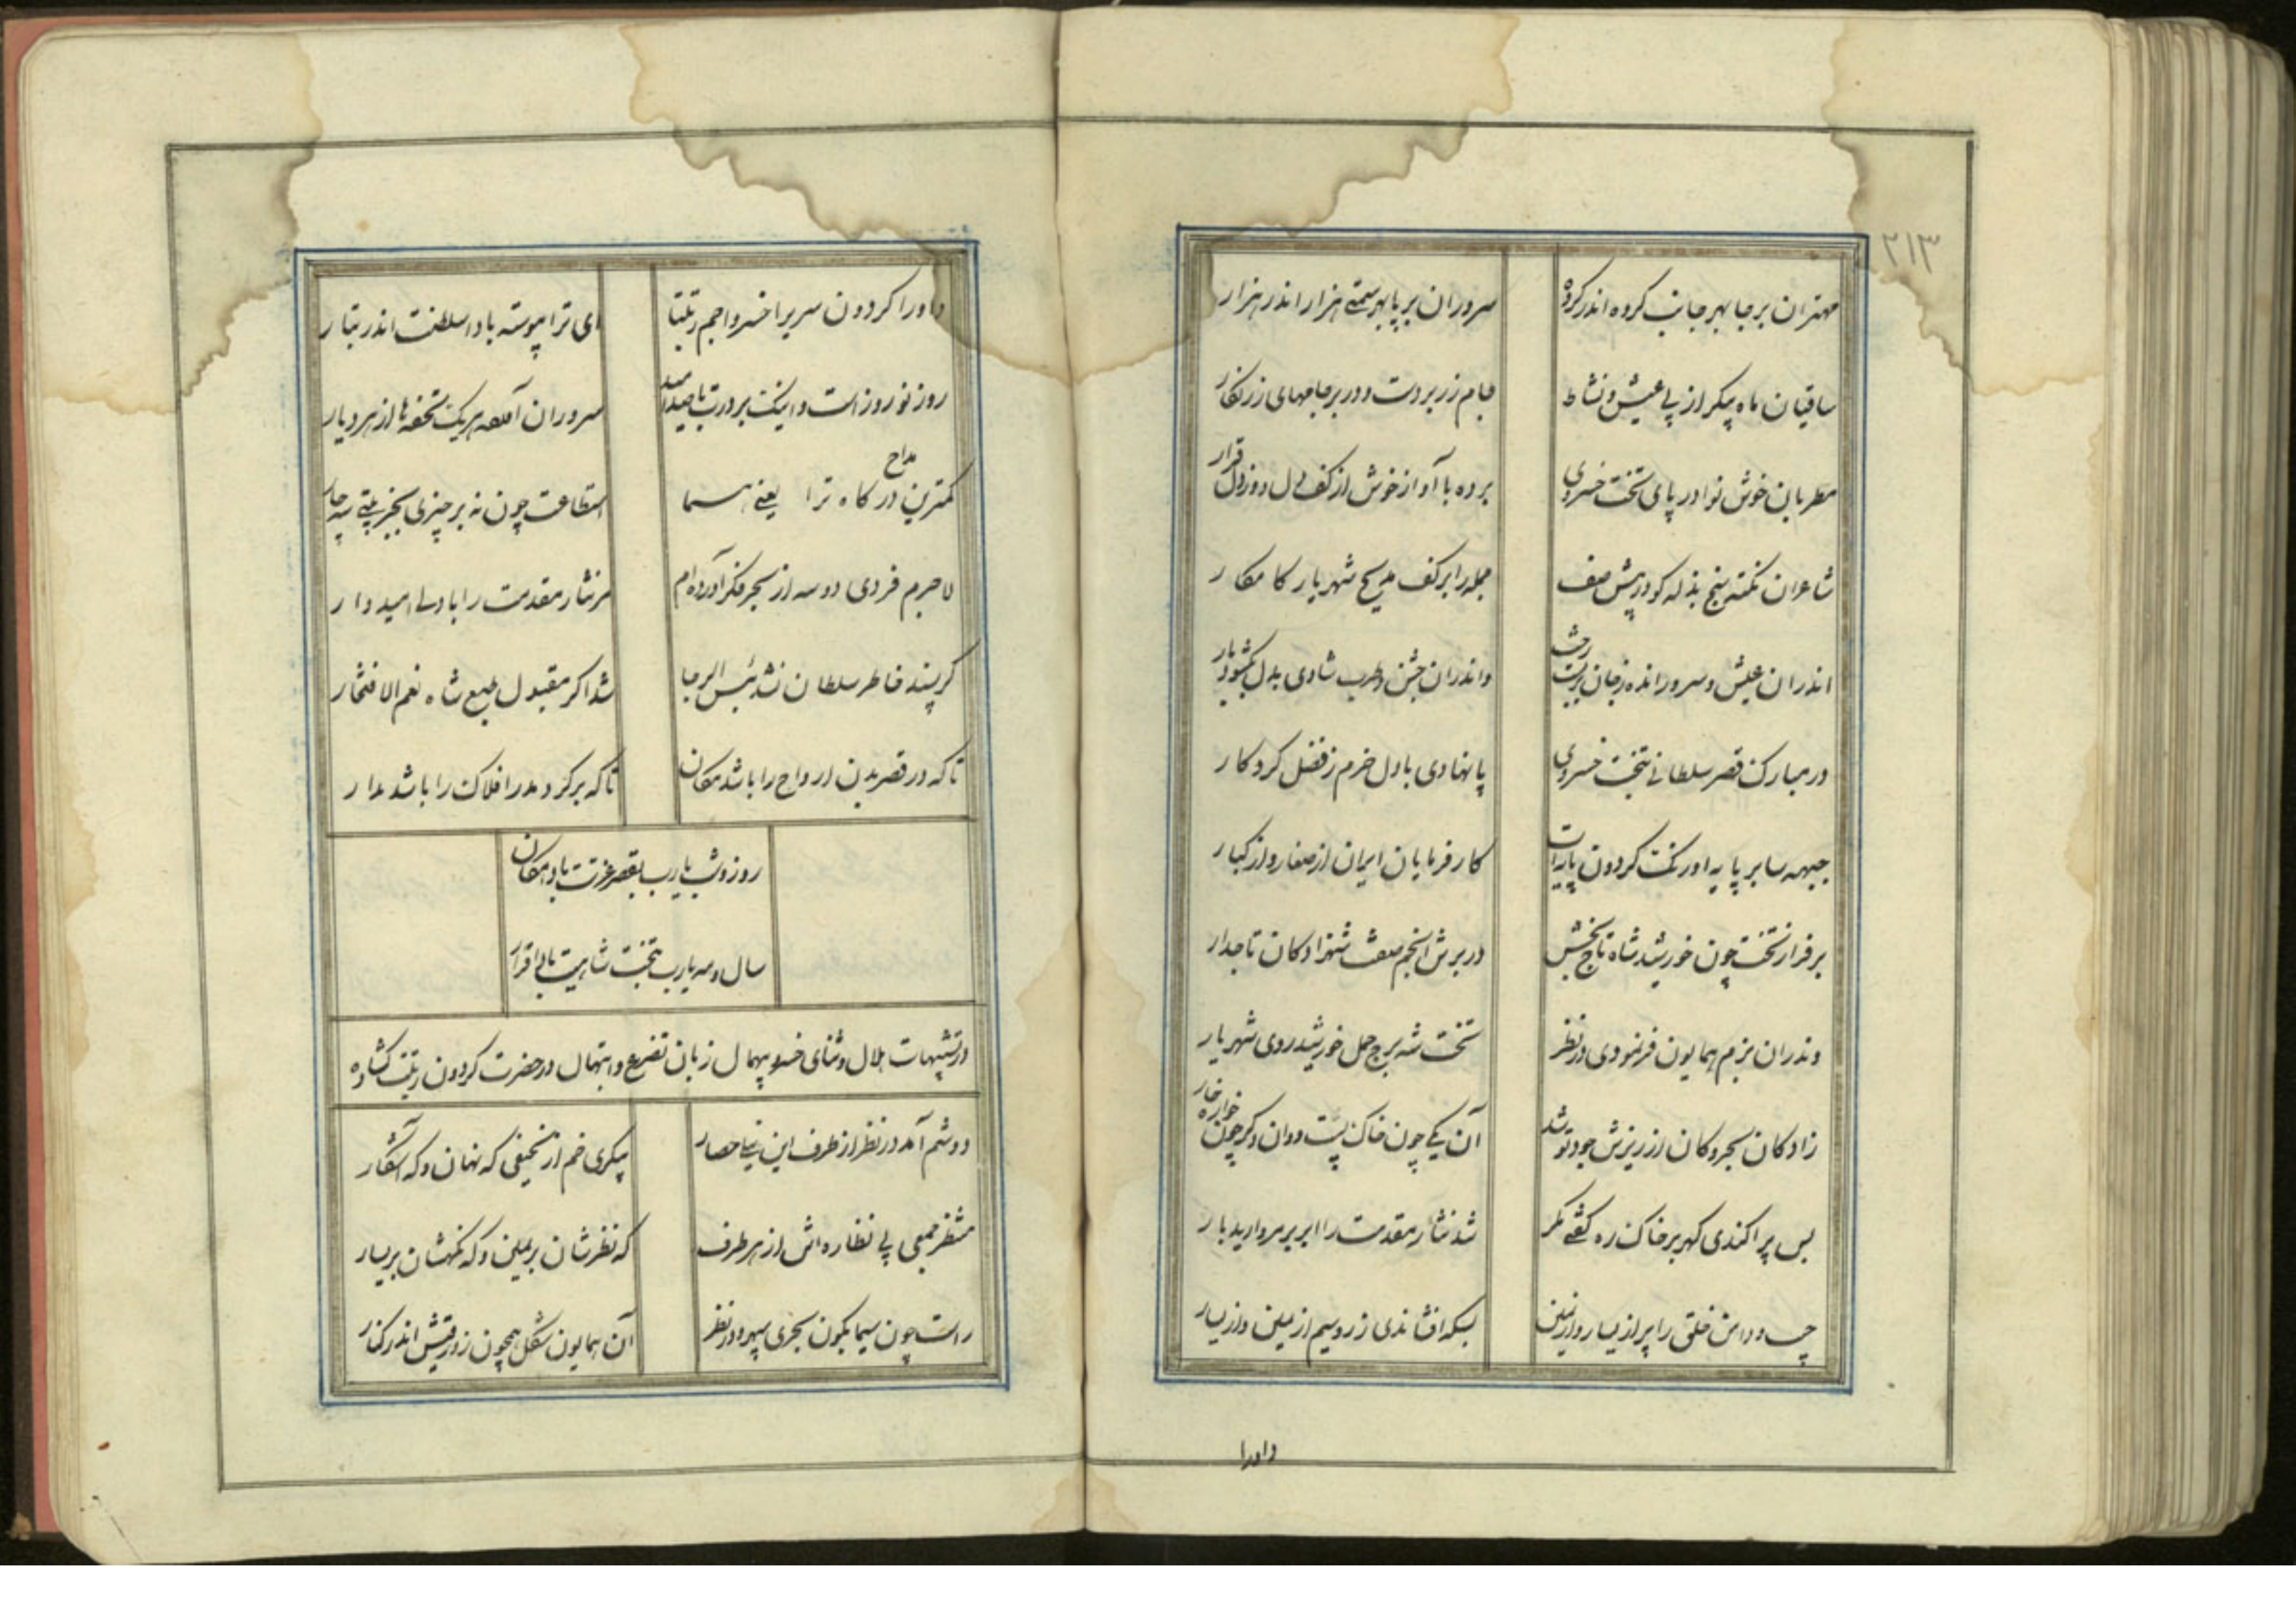 ۲۱۳
مهتران بر جا بهر جانب کروه اندر کروه
سروران بر پا بهر سمتی هزار اندر هزار
ساقیان ماه پیکر از پی عیش و نشاط
جام زر بر دست و در بر جامهای زرنکار
مطربان خوش نوا در پای تخت خسروی
برده با آواز خوش از کف دل و ز دل قرار
شاعران نکته سنج بذله کو در پیش صف
جمله را بر کف مدیح شهریار کامکار
اندران عیش و سرور اندهٔ ز جان بر بست رخت
واندران جشن و طرب شادی بدل بکشود بار
در مبارک قصر سلطانی بتخت خسروی
پا نهادی با دل خرم ز فضل کردکار
جبهه سا بر پایه اورنکت کردون پایه ات
کارفرمایان ایران از صغار و از کبار
بر فراز تخت چون خورشید شاه تاج بخش
در برش انجم صفت شهزادکان تاجدار
وندران بزم همایون فر نمودی در نظر
تخت شه برج حمل خورشید روی شهریار
زادکان بحر و کان از ریزش جود تو شد
آن یکی چون خاک پست و وان دکر چون خواره خار
بس پراکندی کهر بر خاک ره کفتی مکر
شد نثار مقدمت را ابر بر مروارید بار
جیب و دامن خلق را پر از یسار و از یمین
بسکه افشاندی زر و سیم از یمین و از یسار
داورا
داورا کردون سریرا خسروا جم رتبتا
ای ترا پیوسته بادا سلطنت اندر تبار
روز نوروز است و اینک بر درت با صد امید
سروران آمد هریک تحفه ها از هر دیار
کمترین مداح درکاه ترا یعنی هما
استطاعت چون نه بر چیزی بجز بیتی سه چار
لاجرم فردی دو سه از بحر فکر آورده ام
مر نثار مقدمت را با دلی امیدوار
کر پسند خاطر سلطان نشد بئس الرجا
شد اکر مقبول طبع شاه نعم الافتخار
تا که در قصر بدن ارواح را باشد مکان
تا که بر کرد مدر افلاک را باشد مدار
روز و شب یا رب بقصر عزتت بادا مکان
سال و مه یا رب بتخت شاهیت بادا قرار
در تشبیهات هلال و ثنای خسرو بیهمال زبان تضرع و ابتهال در حضرت کردون رتبت کشاده
دوشم آمد در نظر از طرف این نیلی حصار
پیکری خم از نحیفی که نهان و که آشکار
منتظر جمعی پی نظاره اش از هر طرف
که نظرشان بر یمین و که نکهشان بر یسار
راست چون سیمابکون بحری سپهر و در نظر
آن همایون شکل همچون زورقیش اندر کنار